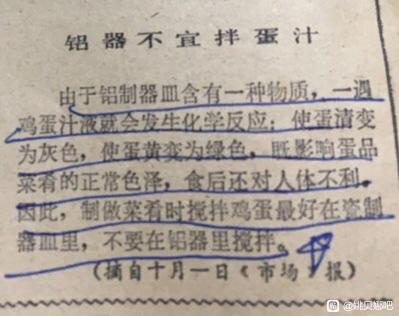 铝器不宜拌蛋汁
由于铝制器皿含有一种物质，一遇
鸡蛋汁液就会发生化学反应；使蛋清变
为灰色，使蛋黄变为绿色，既影响蛋品
菜肴的正常色泽，食后还对人体不利。
因此，制做菜肴时搅拌鸡蛋最好在瓷制
器皿里，不要在铝器里搅拌。
（摘自十月一日《市场报》